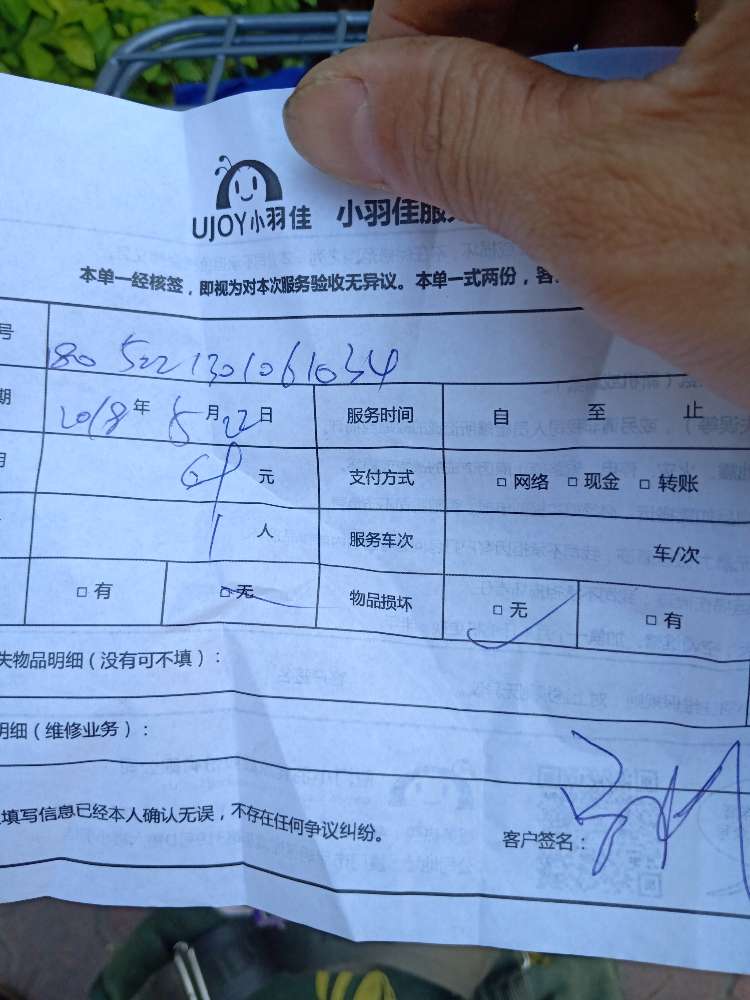 UJOY小羽佳 小羽佳服
本单一经核签，即视为对本次服务验收无异议。本单一式两份，客
号 80 5221301061034
期 2018年5月22日 服务时间 自 至 止
用 元 支付方式 □ 网络 □ 现金 □ 转账
1 人 服务车次 车/次
□ 有 □ 无 物品损坏 □ 无 □ 有
失物品明细（没有可不填）：
明细（维修业务）：
填写信息已经本人确认无误，不存在任何争议纠纷。
客户签名：